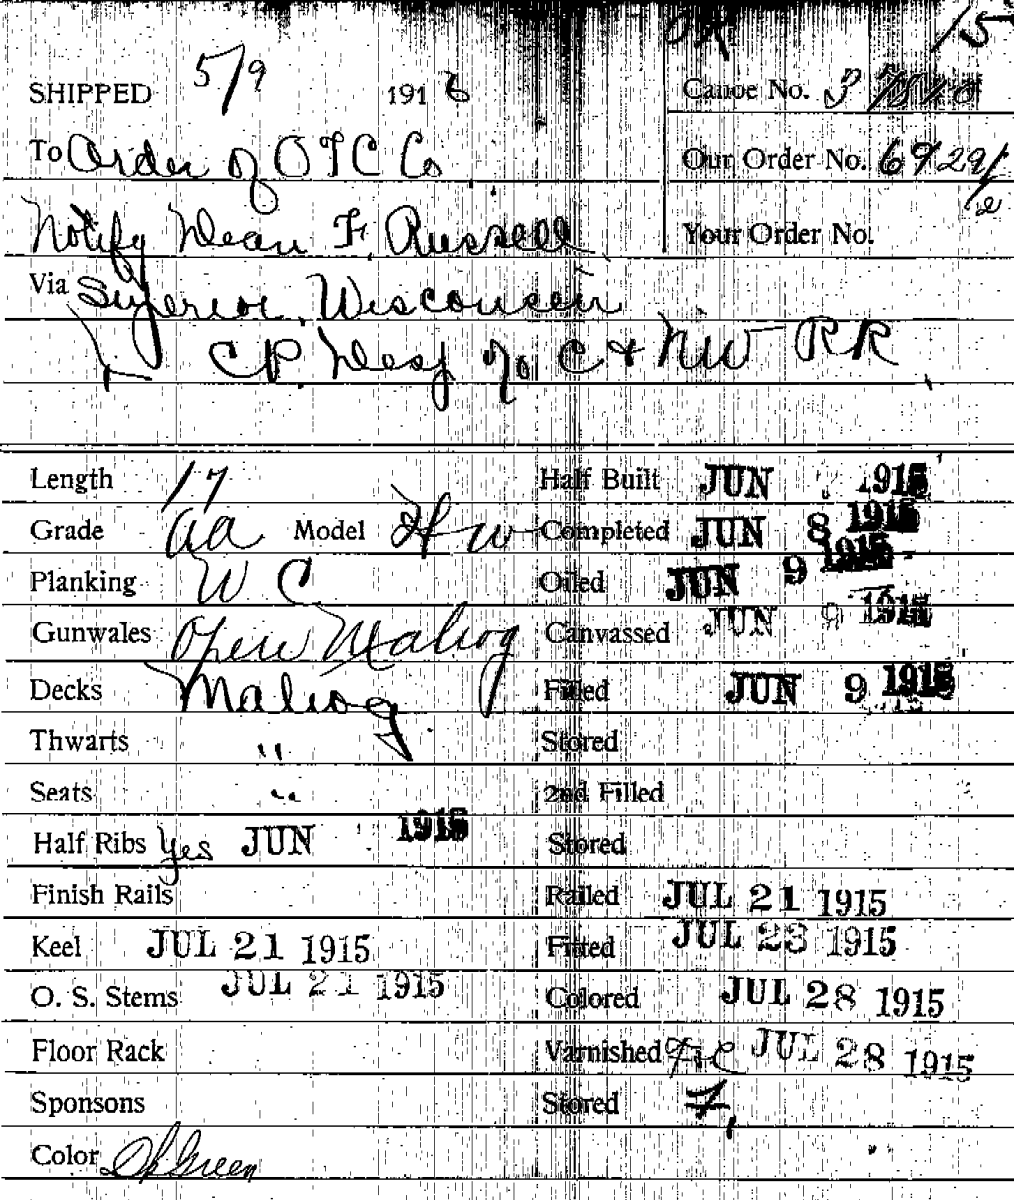 OK 15
SHIPPED 5/9 1916 Canoe No. 3
To Order of OTC Co Our Order No. 69291/2
Notify Dean F. Russell Your Order No.
Via Superior, Wisconsin
CP. Desp % C & NW RR
Length 17 Half Built JUN 1915
Grade aa Model HW Completed JUN 8 1915
Planking W C Oiled JUN 9 1915
Gunwales Open Mahog Canvassed JUN 9 1915
Decks Mahog Filled JUN 9 1915
Thwarts " Stored
Seats " 2nd Filled
Half Ribs Yes JUN 1915 Stored
Finish Rails Railed JUL 21 1915
Keel JUL 21 1915 Fitted JUL 23 1915
O. S. Stems JUL 21 1915 Colored JUL 28 1915
Floor Rack Varnished JUL 28 1915
Sponsons Stored 7
Color Dk Green